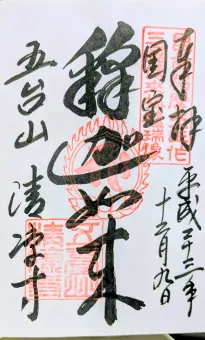 奉拝
平成二十三年
十二月九日
国宝
釋迦如来
五台山 清凉寺